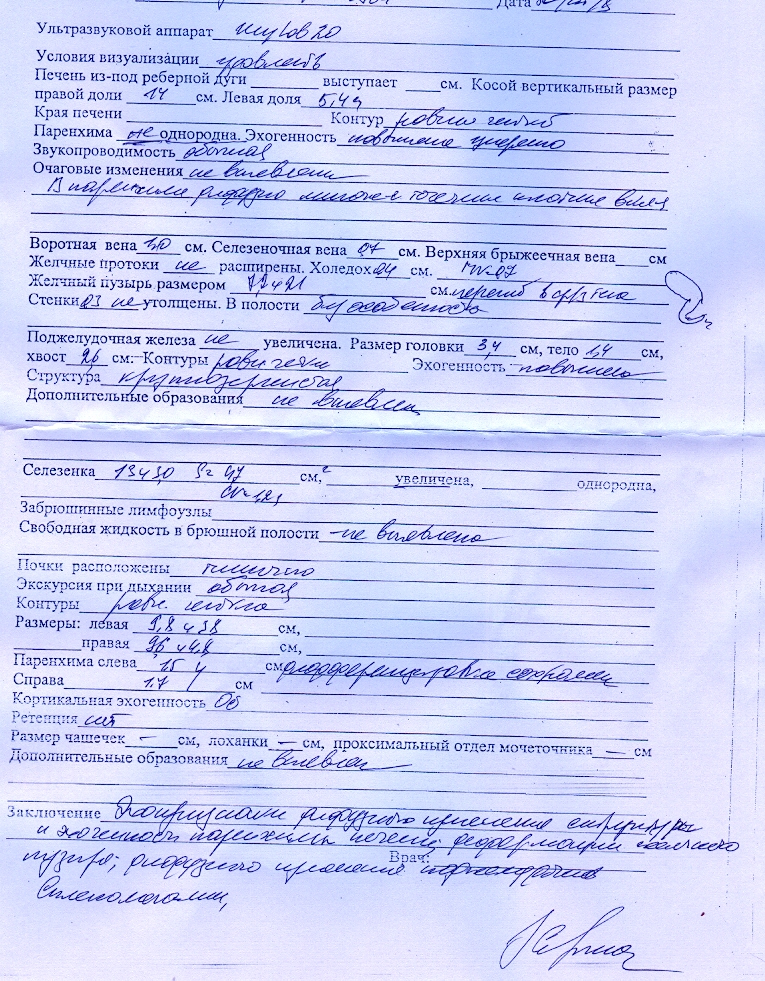 Дата
Ультразвуковой аппарат
Условия визуализации удовлетв
Печень из-под реберной дуги выступает см. Косой вертикальный размер
правой доли 14 см. Левая доля
Края печени Контур ровный четкий
Паренхима не однородна. Эхогенность повышена умерено
Звукопроводимость обычная
Очаговые изменения не выявлены
В паренхиме диффузно
Воротная вена 1,0 см. Селезеночная вена 0,7 см. Верхняя брыжеечная вена см
Желчные протоки не расширены. Холедох 0,4 см.
Желчный пузырь размером см. перегиб в с/3 тела
Стенки 0,3 не утолщены. В полости без особенностей
Поджелудочная железа не увеличена. Размер головки 3,4 см, тело 1,4 см,
хвост 2,6 см. Контуры ровн четкие Эхогенность повышена
Структура крупнозернистая
Дополнительные образования не выявлен
Селезенка см,² увеличена, однородна,
Забрюшинные лимфоузлы
Свободная жидкость в брюшной полости не выявлено
Почки расположены типично
Экскурсия при дыхании обычная
Контуры ровн. четкие
Размеры: левая см,
правая см,
Паренхима слева см дифференцировка сохранен
Справа 1,7 см
Кортикальная эхогенность Об
Ретенция нет
Размер чашечек — см, лоханки — см, проксимальный отдел мочеточника — см
Дополнительные образования не выявлен
Заключение Эхопризнаки диффузного изменения структуры
и эхогенности паренхимы печени, деформации желчного
пузыря; диффузного изменения Врач:
Спленомегалии,